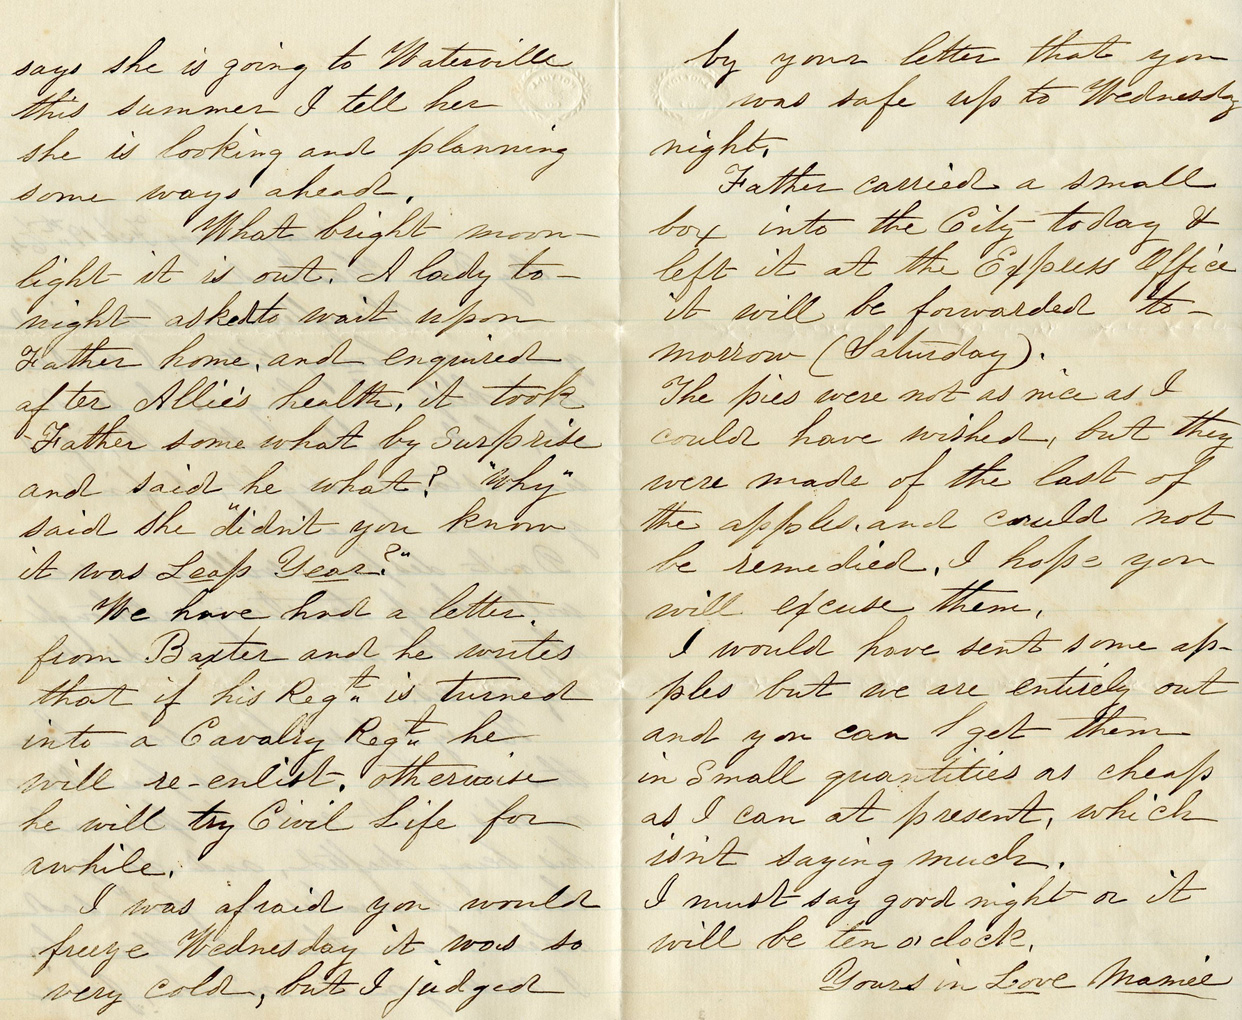 says she is going to Waterville
this summer I tell her
she is looking and planning
some ways ahead.
What bright moon-
light it is out. A lady to-
night asked to wait upon
Father home, and enquired
after Allie's health, it took
Father some what by Surprise
and said he what? "Why"
said she "didn't you know
it was Leap Year?"
We have had a letter
from Baxter and he writes
that if his Regt. is turned
into a Cavalry Regt. he
will re-enlist, otherwise
he will try Civil Life for
awhile.
I was afraid you would
freeze Wednesday it was so
very cold, but I judged
by your letter that you
was safe up to Wednesday
night.
Father carried a small
box into the City today &
left it at the Express Office
it will be forwarded to-
morrow (Saturday).
The pies were not as nice as I
could have wished, but they
were made of the last of
the apples, and could not
be remedied, I hope you
will excuse them.
I would have sent some ap-
ples but we are entirely out
and you can get them
in Small quantities as cheap
as I can at present, which
isn't saying much.
I must say good night or it
will be ten o'clock.
Yours in Love Mamie